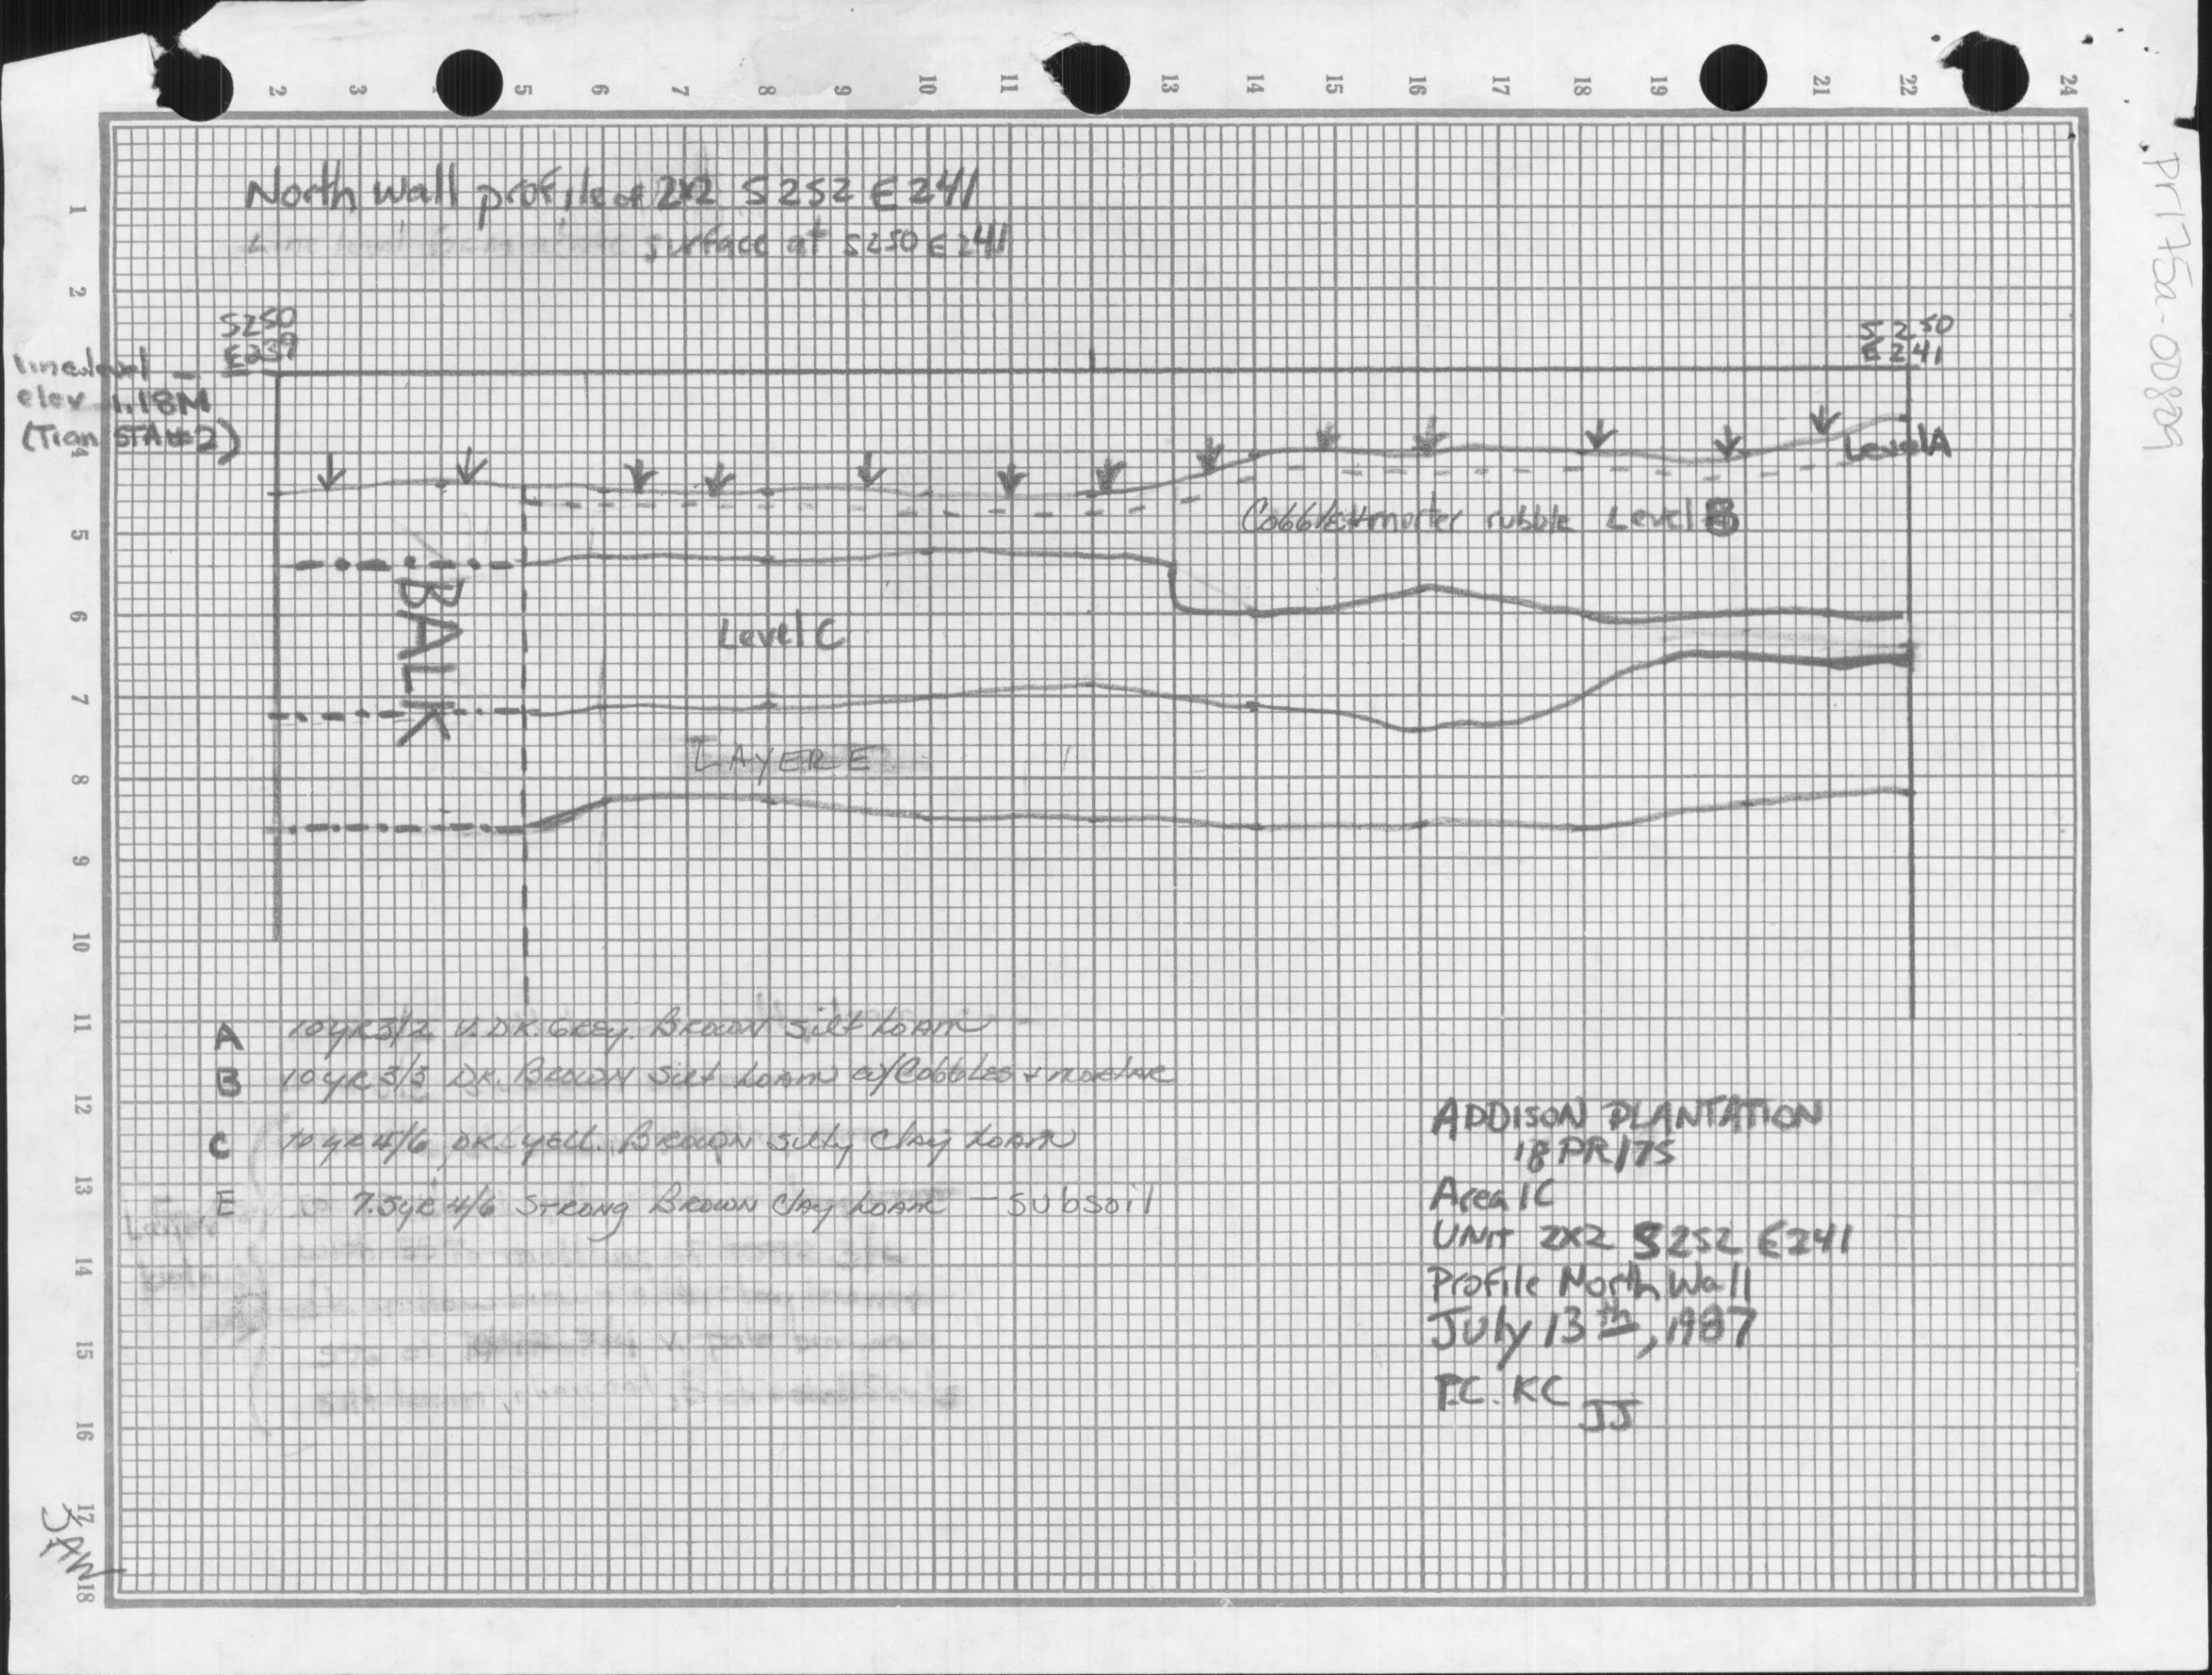 2 3 5 6 7 8 9 10 11 13 14 15 16 17 18 19 21 22 24
pr175a-00829
North wall profile of 2x2 S252 E241
surface at S250 E241
S250
E239
S250
E241
line level
elev 1.18M
(Tran STA#2)
Level A
Cobble+morter rubble Level B
BALK
Level C
LAYER E
A 10YR3/2 V. DK. GREY. BROWN silt LOAM
B 10YR 3/3 DK. BROWN silt LOAM w/Cobbles + mortar
C 10YR 4/6 DK. YELL. BROWN silty Clay LOAM
E 7.5YR 4/6 STRONG BROWN Clay LOAM - subsoil
Layer
ADDISON PLANTATION
18 PR 175
Area 1C
UNIT 2x2 S252 E241
Profile North Wall
July 13th, 1987
P.C. KC JJ
JAW
1
2
4
5
6
7
8
9
10
11
12
13
14
15
16
17
18